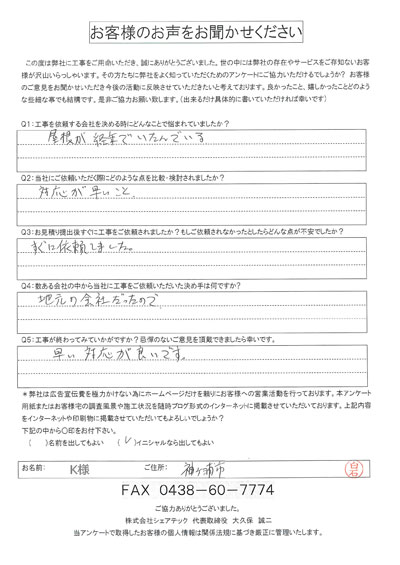 お客様のお声をお聞かせください
この度は弊社に工事をご用命いただき、誠にありがとうございました。世の中には弊社の存在やサービスをご存知ないお客
様が沢山いらっしゃいます。その方たちに弊社をよく知っていただくためのアンケートにご協力いただけるでしょうか？ お客様
のご意見をお聞かせいただき今後の活動に反映させていただきたいと考えております。良かったこと、嬉しかったことどのよう
な些細な事でも結構です。是非ご協力お願い致します。（出来るだけ具体的に書いていただければ幸いです）
Q1：工事を依頼する会社を決める時にどんなことで悩まれていましたか？
屋根が経年でいたんでいる
Q2：当社にご依頼いただく際にどのような点を比較・検討されましたか？
対応が早いこと。
Q3：お見積り提出後すぐに工事をご依頼されましたか？もしご依頼されなかったとしたらどんな点が不安でしたか？
すぐに依頼しました。
Q4：数ある会社の中から当社に工事をご依頼いただいた決め手は何ですか？
地元の会社だったので
Q5：工事が終わってみていかがですか？忌憚のないご意見を頂戴できましたら幸いです。
早い対応が良いです。
＊弊社は広告宣伝費を極力かけない為にホームページだけを頼りにお客様への営業活動を行っております。本アンケート
用紙またはお客様宅の調査風景や施工状況を随時ブログ形式のインターネットに掲載させていただいております。上記内容
をインターネットや印刷物に掲載させていただいてもよろしいでしょうか？
下記の中から〇印をお付下さい。
（ ）名前を出してもよい （レ）イニシャルなら出してもよい
お名前： K様 ご住所： 袖ケ浦市 白石
FAX 0438－60－7774
ご協力ありがとうございました。
株式会社シェアテック 代表取締役 大久保 誠二
当アンケートで取得したお客様の個人情報は関係法規に基づき厳正に管理いたします。